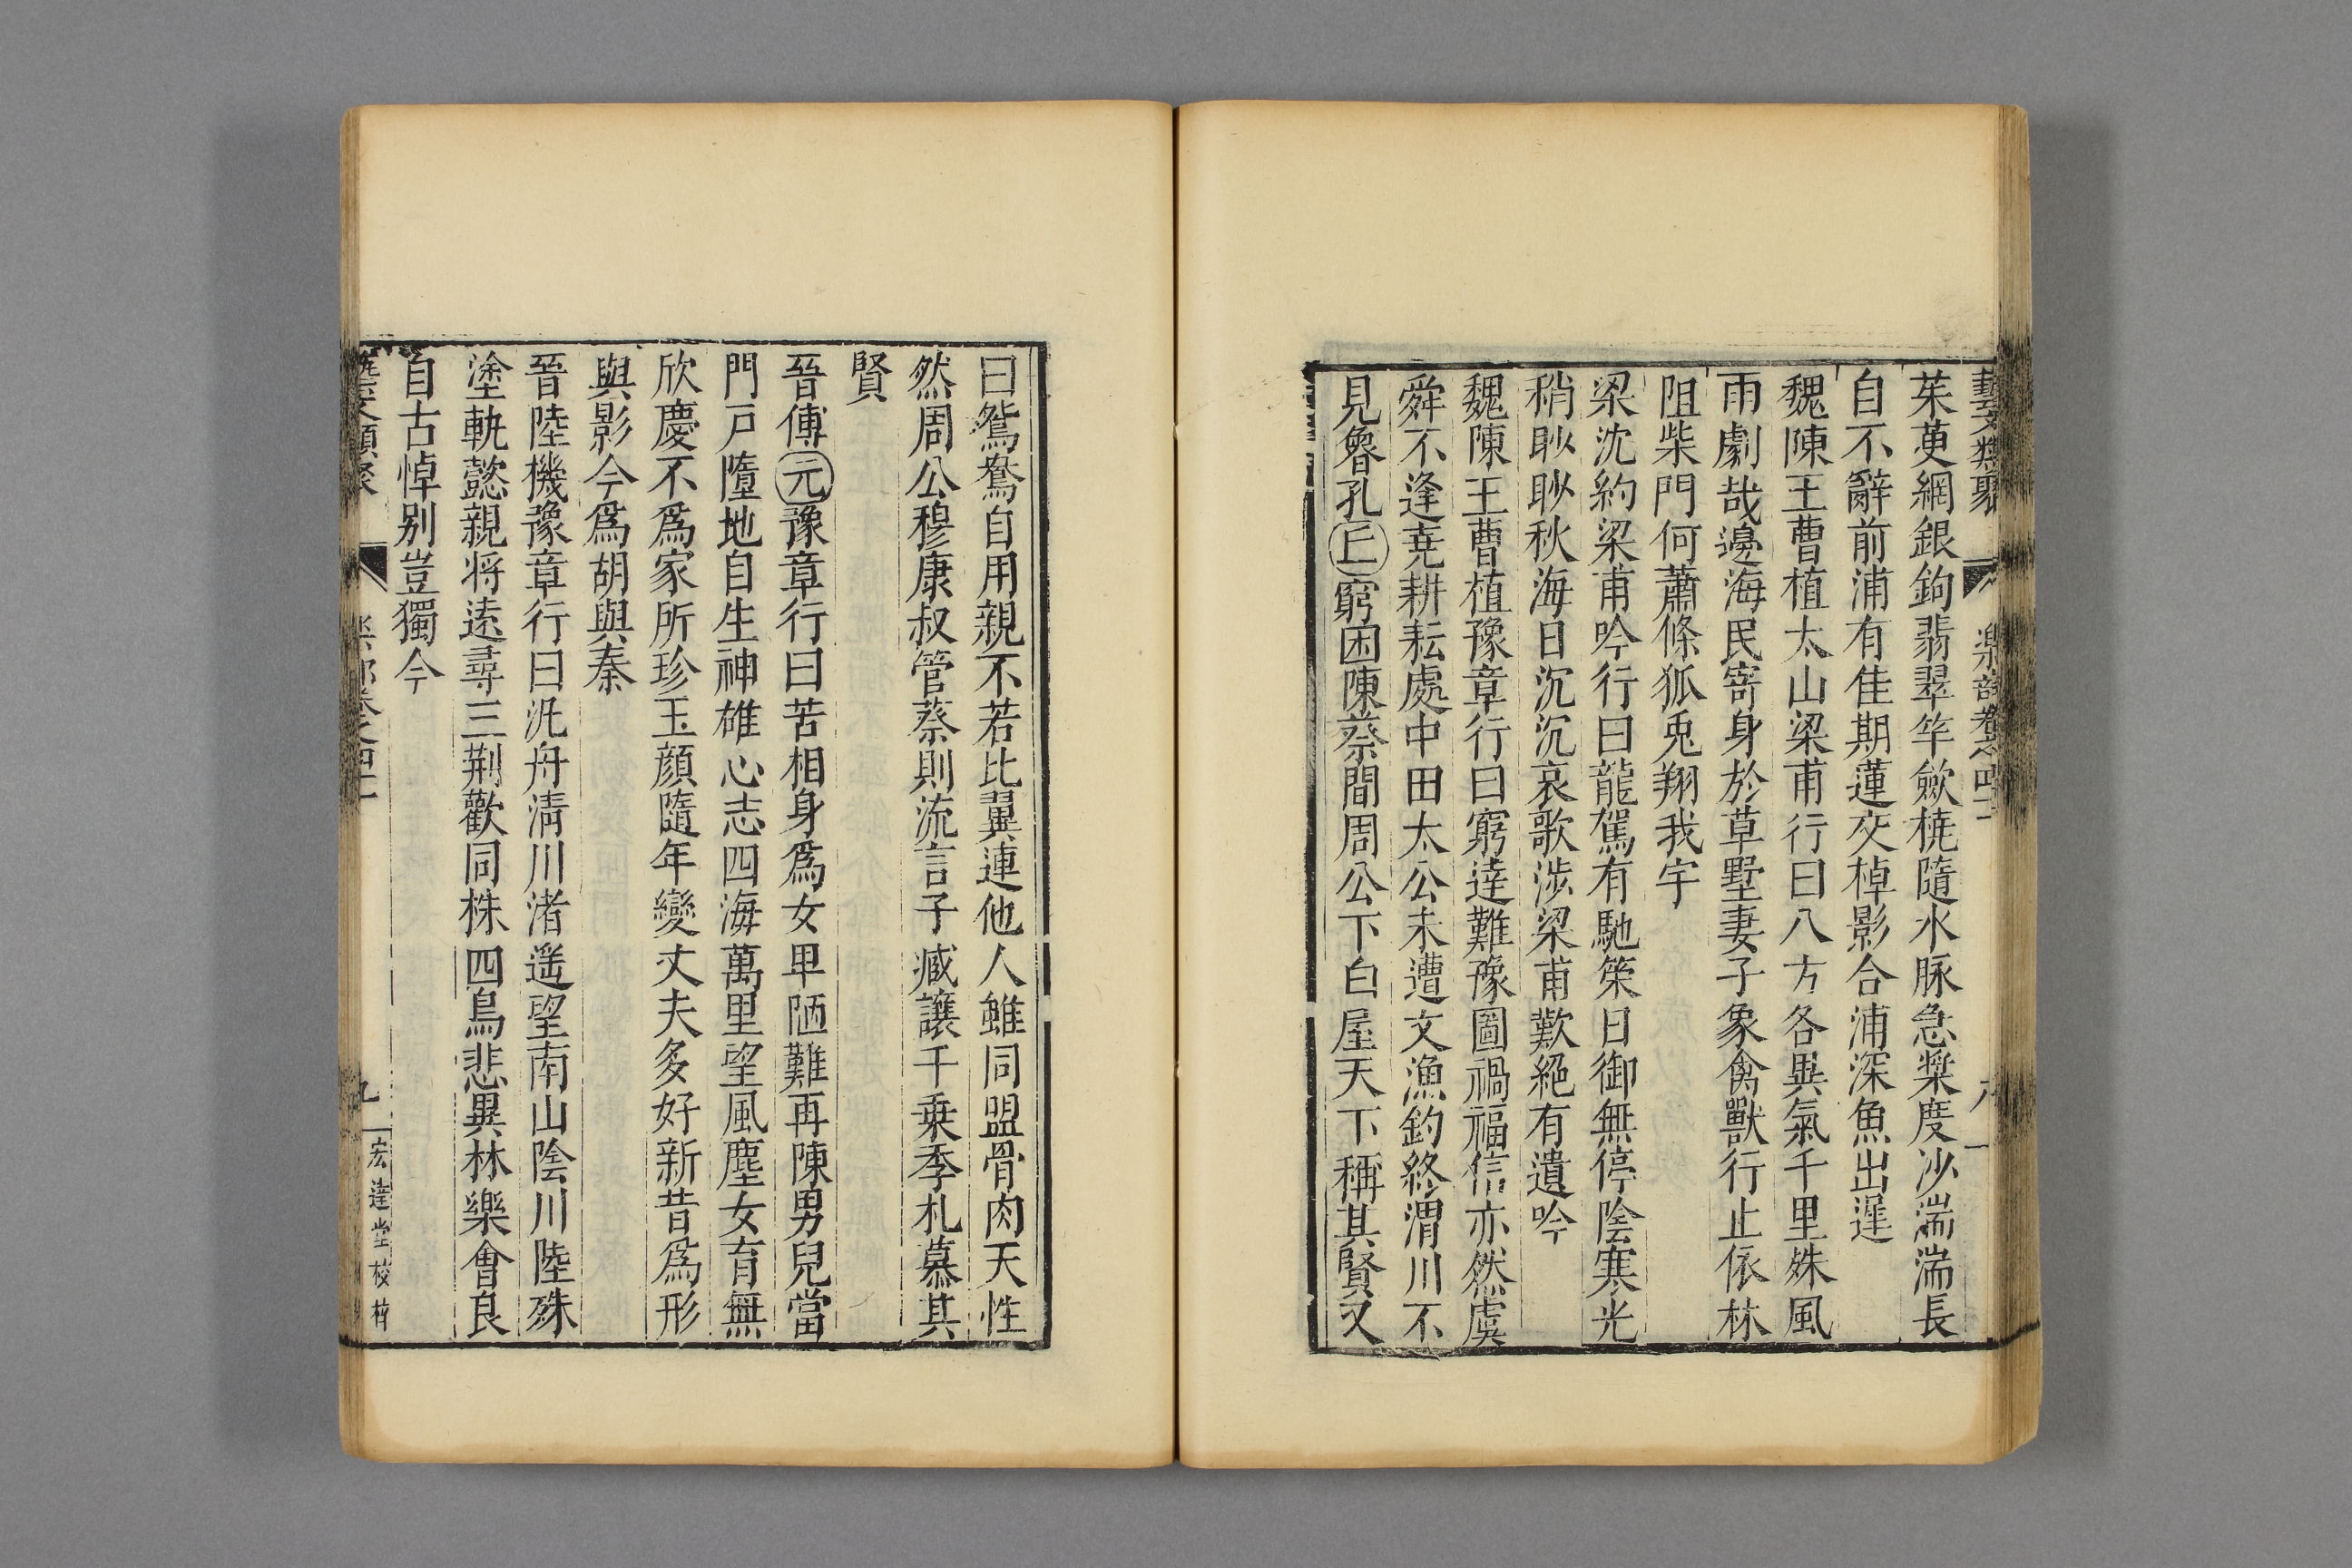 藝文類聚 樂部卷之四十一 八
茱萸網銀鉤翡翠竿歛橈隨水脉急槳度沙湍湍長
自不辭前浦有佳期蓮交棹影合浦深魚出遲
魏陳王曹植太山梁甫行曰八方各異氣千里殊風
雨劇哉邊海民寄身於草墅妻子象禽獸行止依林
阻柴門何蕭條狐兎翔我宇
梁沈約梁甫吟行曰龍駕有馳策日御無停陰寒光
稍眇眇秋海日沉沉哀歌涉梁甫歎絕有遺吟
魏陳王曹植豫章行曰窮達難豫圖禍福信亦然虞
舜不逢堯耕耘處中田太公未遭文漁釣終渭川不
見魯孔丘窮困陳蔡間周公下白屋天下稱其賢又
曰鴛鴦自用親不若比翼連他人雖同盟骨肉天性
然周公穆康叔管蔡則流言子臧讓千乗季札慕其
賢
晉傅元豫章行曰苦相身爲女卑陋難再陳男兒當
門戸墮地自生神雄心志四海萬里望風塵女育無
欣慶不爲家所珍玉顔隨年變丈夫多好新昔爲形
與影今爲胡與秦
晉陸機豫章行曰汎舟淸川渚遙望南山陰川陸殊
塗軌懿親將逺尋三荆歡同株四鳥悲異林樂會良
自古悼别豈獨今
藝文類聚 樂部卷之四十一 九 宏達堂校梓